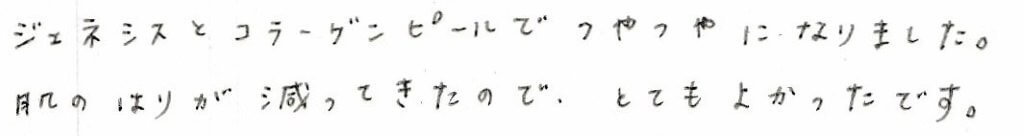 ジェネシスとコラーゲンピールでつやつやになりました。
肌のはりが減ってきたので、とてもよかったです。